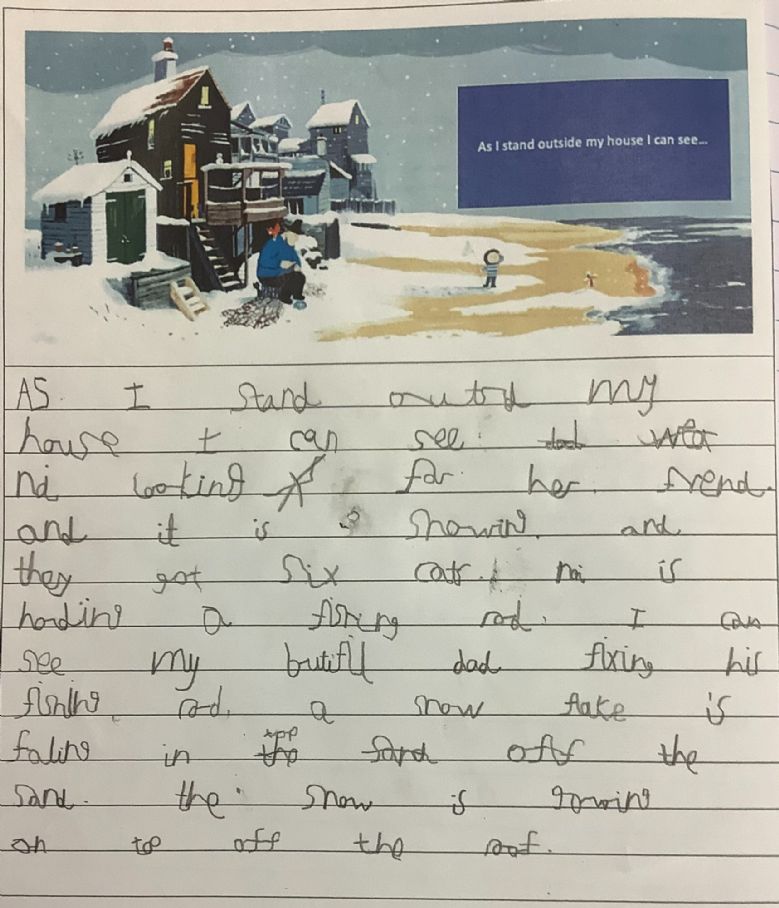 As I stand outside my house I can see...
AS I stand outsd my
house I can see
ni looking for her frend.
and it is snowing. and
they got six cats. ni is
holding a fishing rod. I can
see my butifll dad fixing his
fishing rod. a snow flake is
faling in top off the
sand. the snow is gowing
on top off the roof.